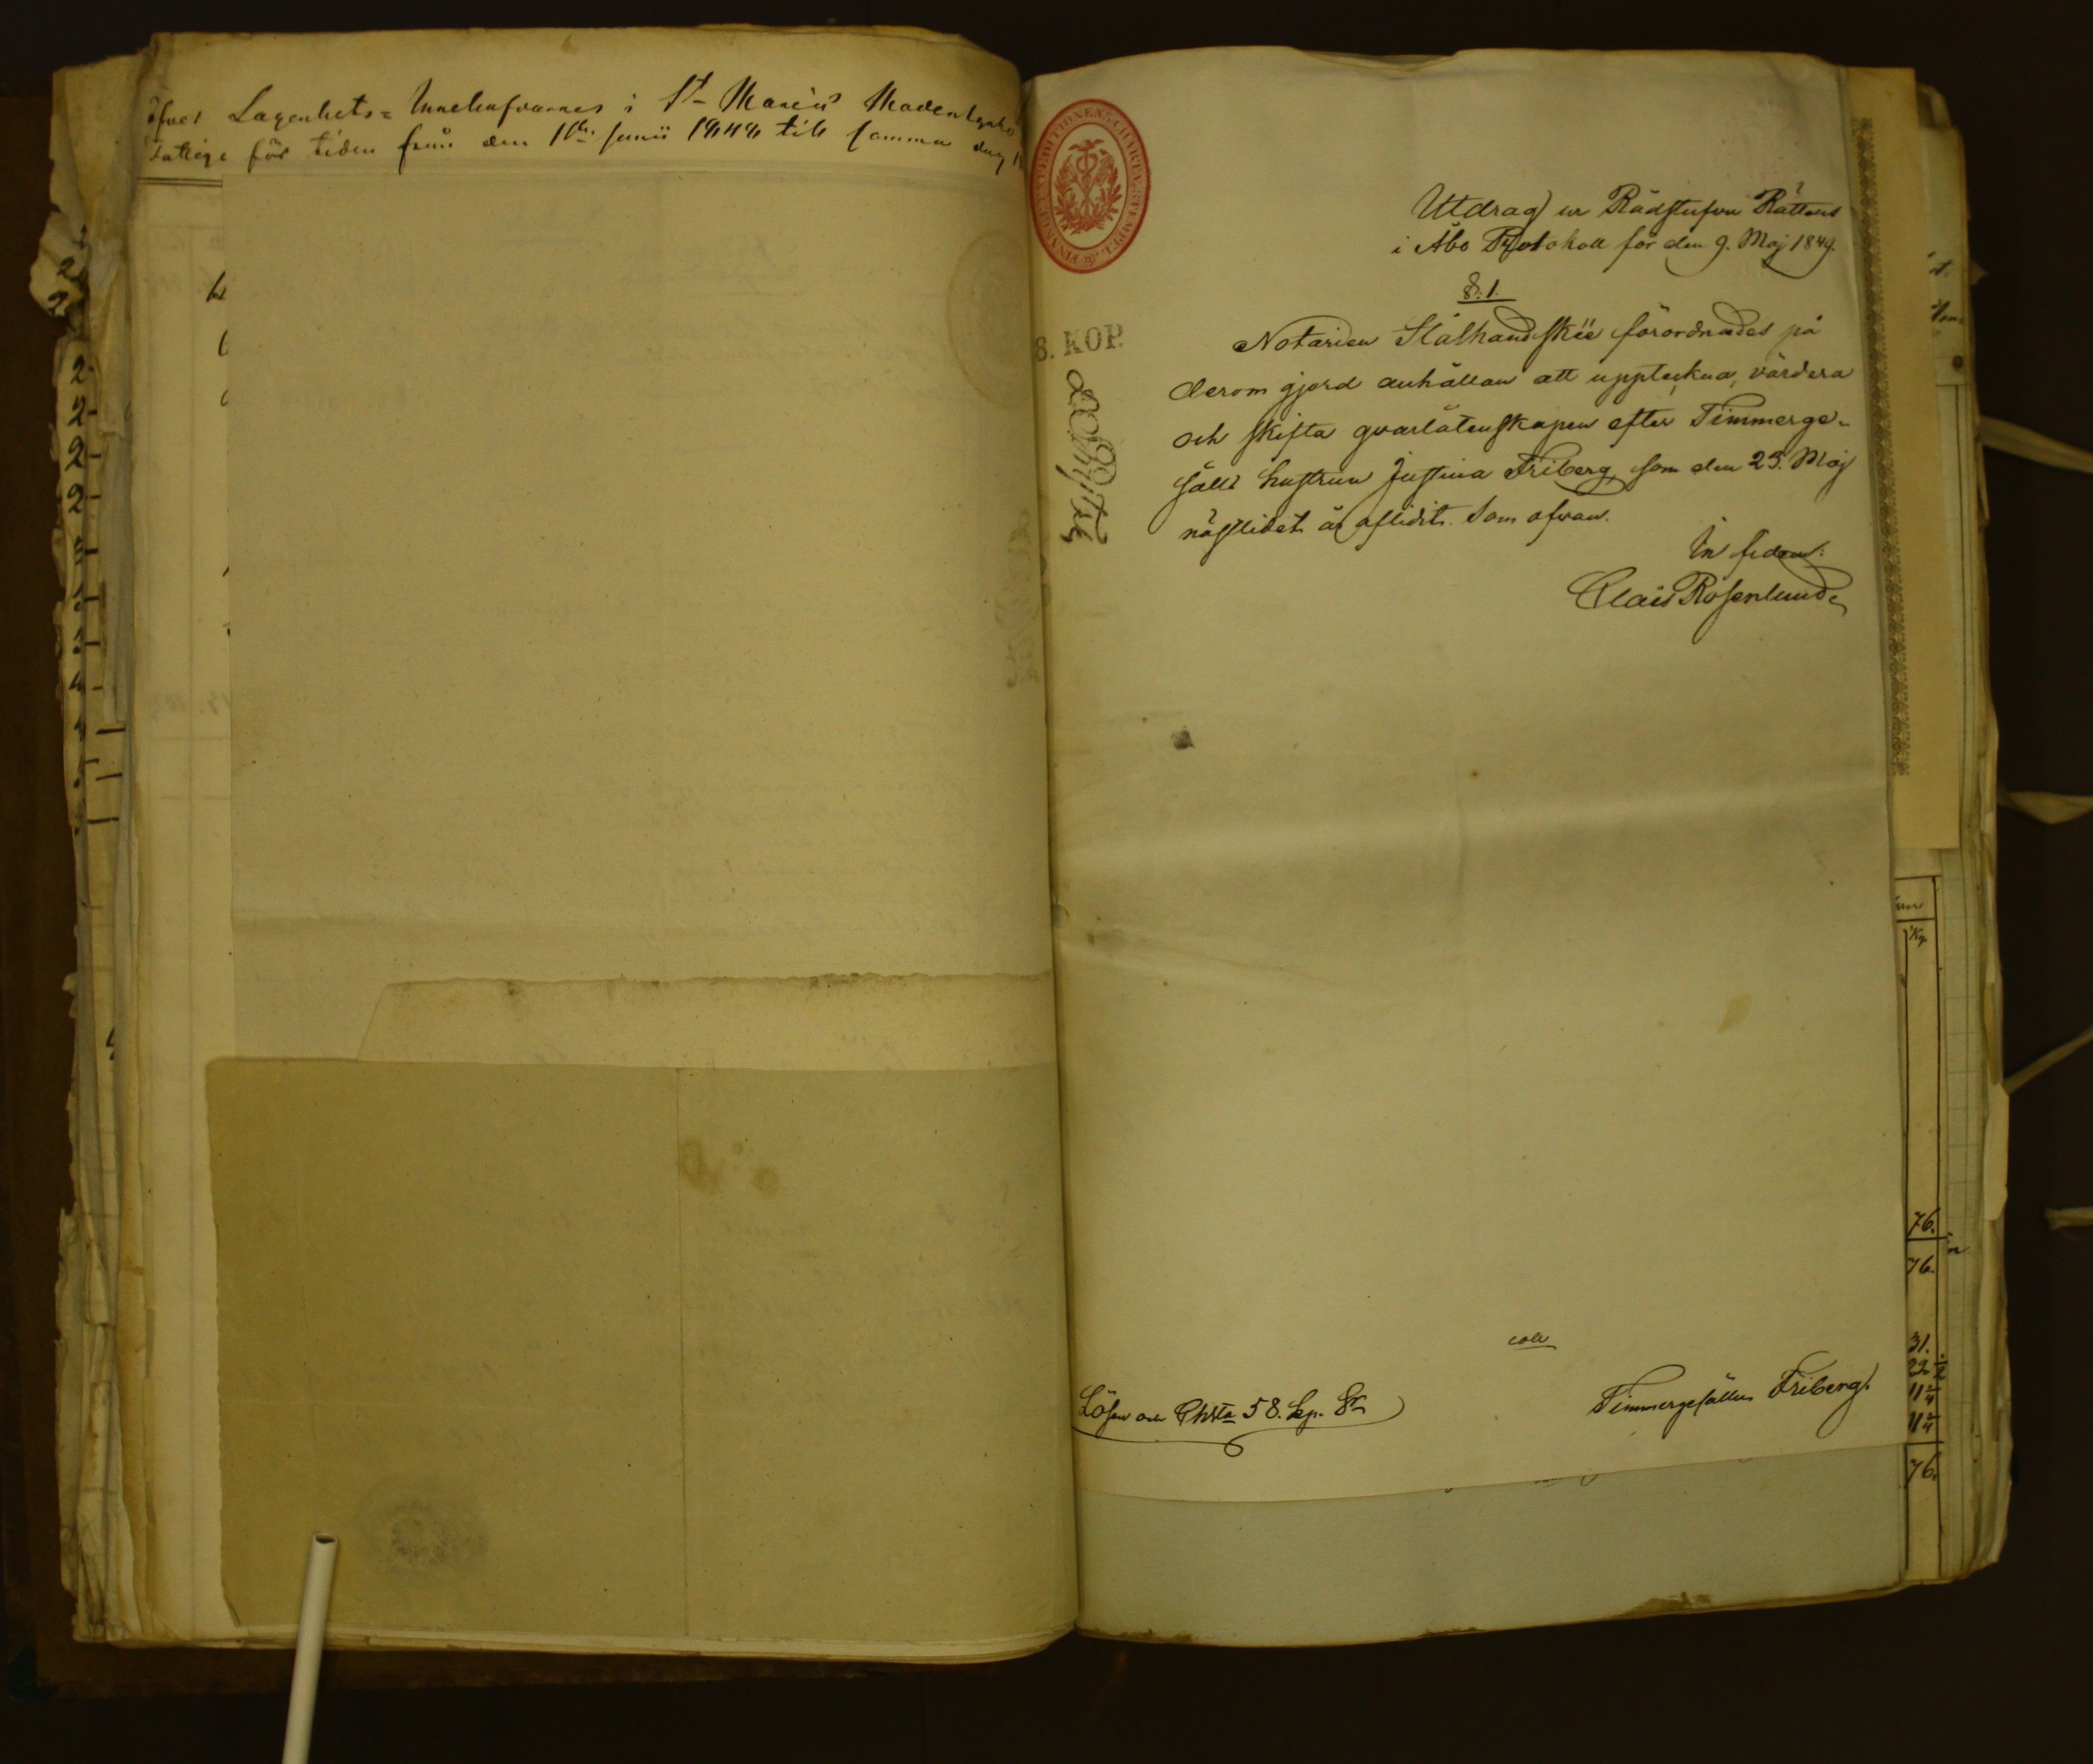 öfver Lägenhets-Innehafvarnes i St Mariæ
för tiden från den 1sta Junii 1848 till samma dag
Utdrag ur Rådstufvu Rättens
i Åbo Protokoll för den 9. Maj 1849.
§. 1.
Notarien Stålhandskée förordnades på
derom gjord anhållan att uppteckna, värdera
och skifta qvarlåtenskapen efter Timmerge-
sälls hustrun Justina Friberg, som den 25. Maj
nästlidet år aflidit. Som ofvan.
In fidem:
Claës Rosenlund
8. KOP.
coll
Lösen och Chta 58. kp. Sr
Timmergesällen Friberg.
76.
76.
31.
22 1/2
11 1/4
11 1/4
76.